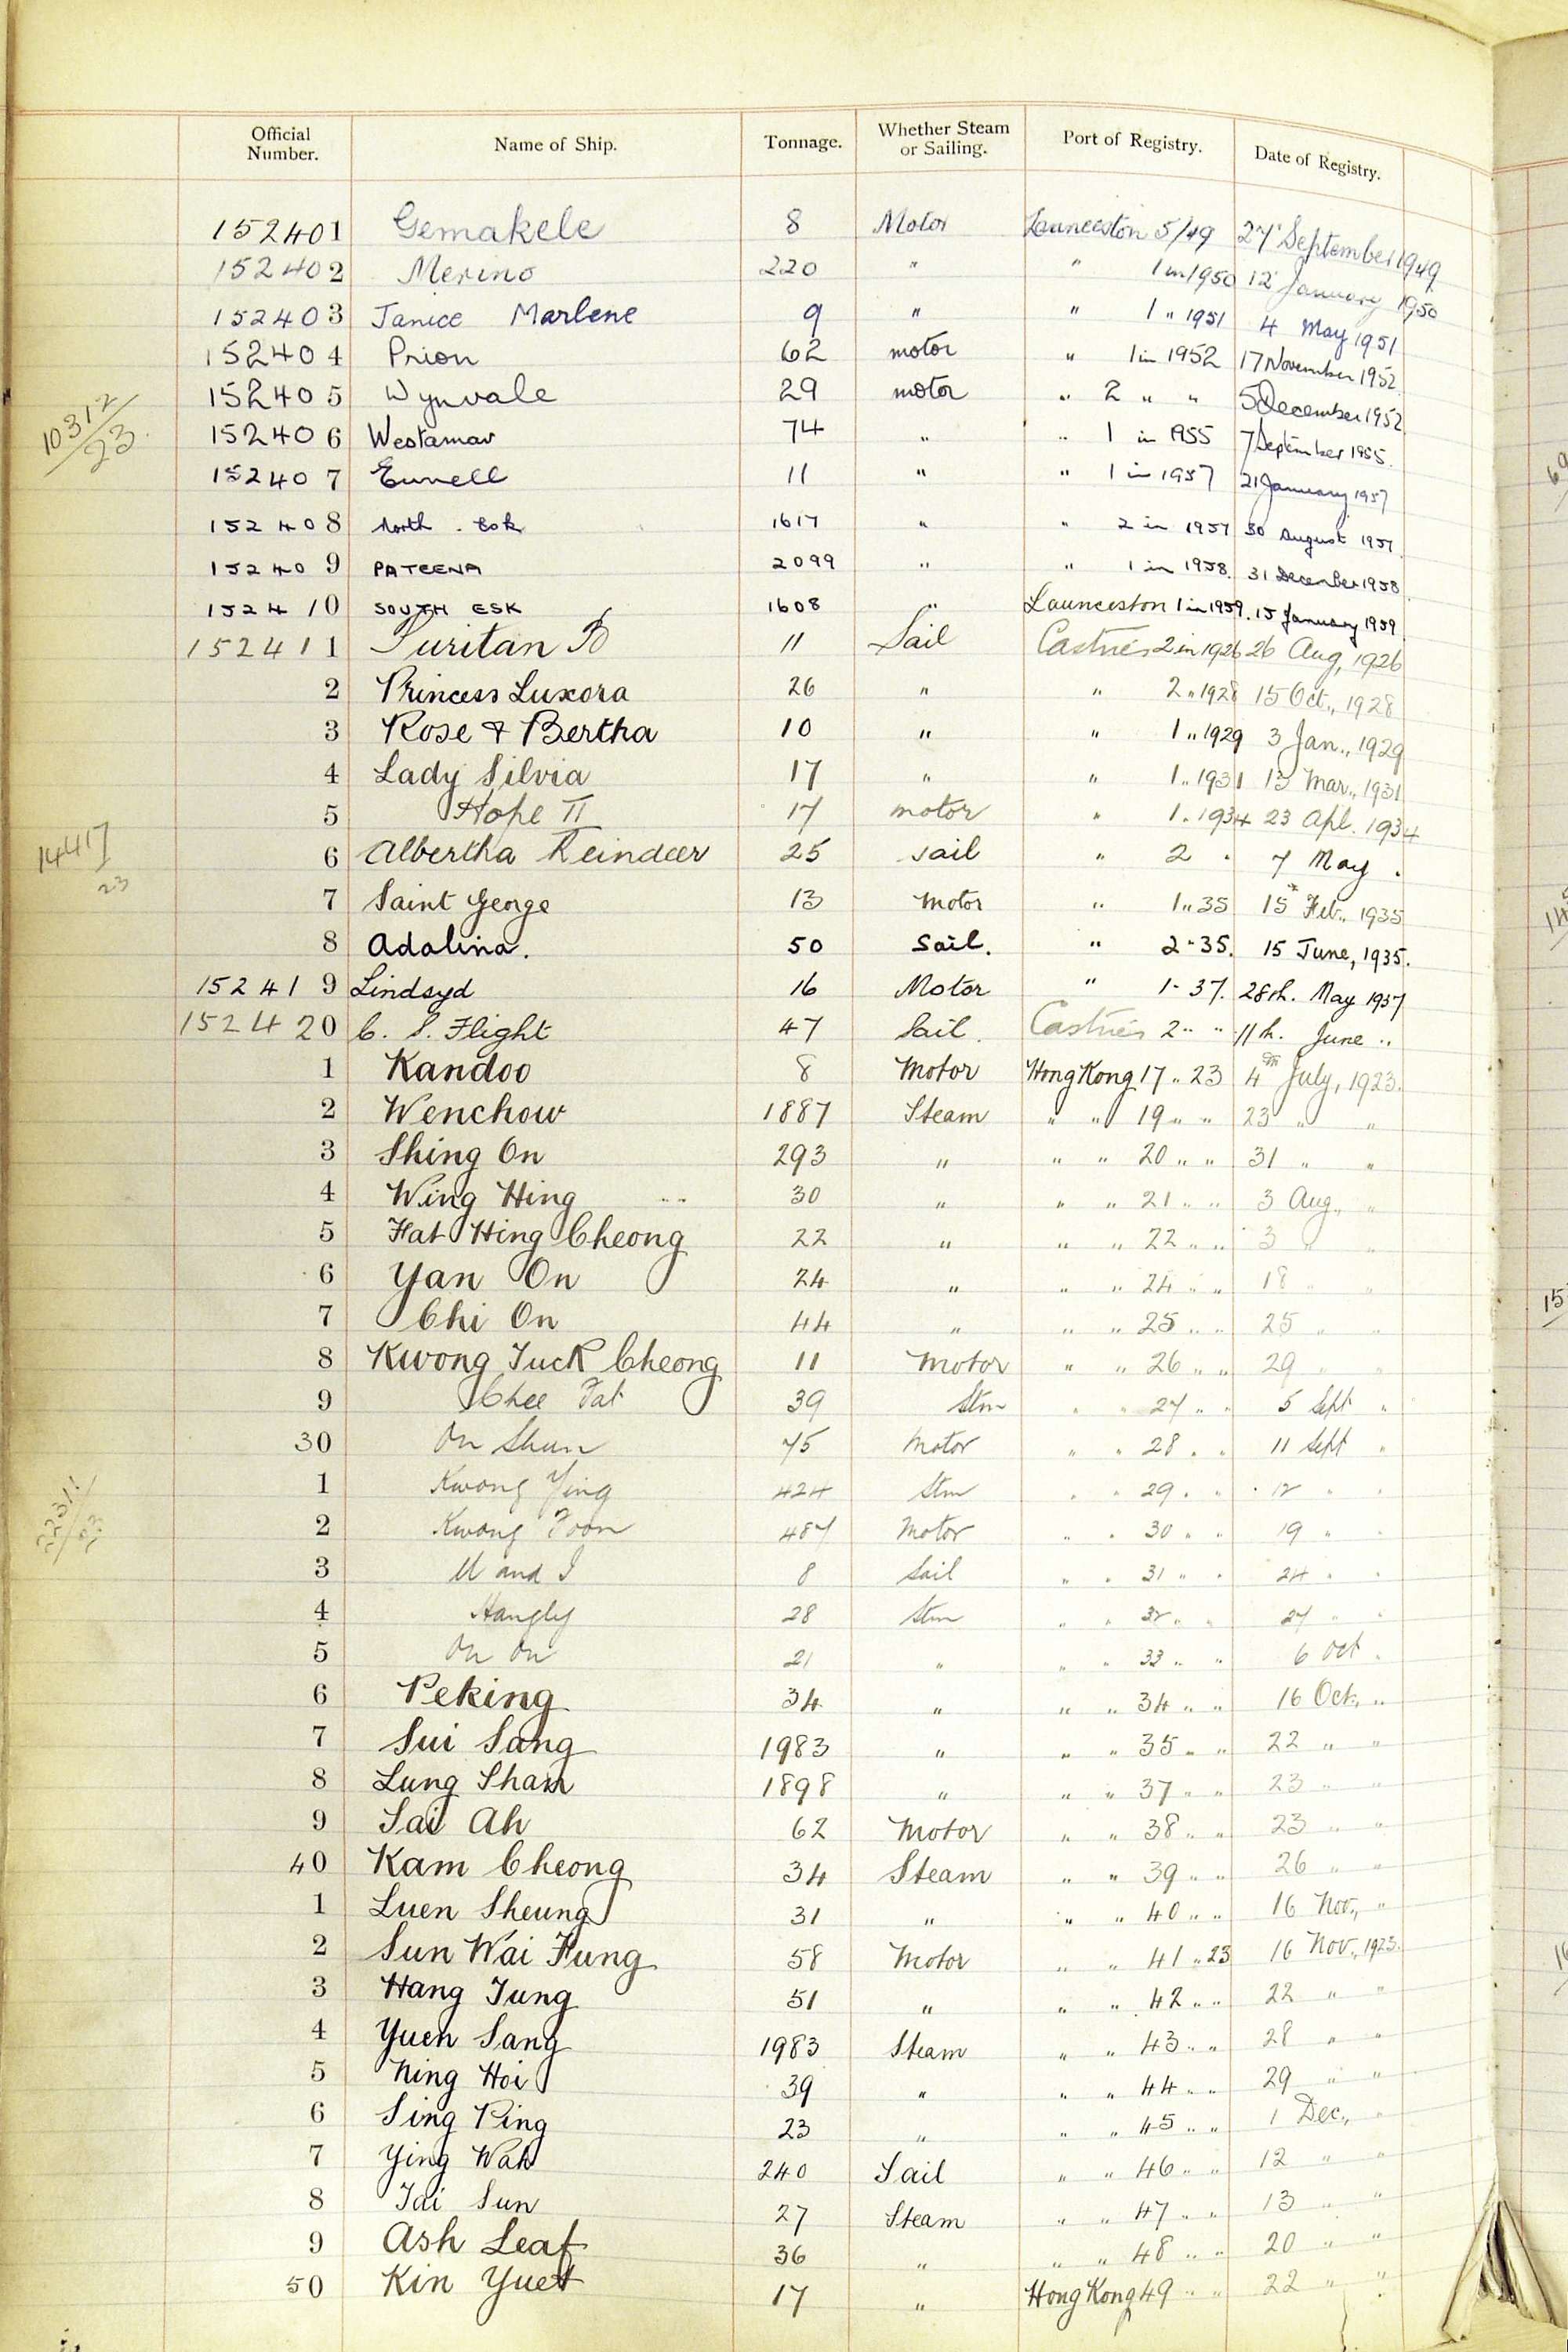 Official Number. Name of Ship. Tonnage. Whether Steam or Sailing. Port of Registry. Date of Registry.
152401 Gemakele 8 Motor Launceston 5/49 27 September 1949
152402 Merino 220 " " 1 in 1950 12 January 1950
152403 Janice Marlene 9 " " 1 " 1951 4 May 1951
152404 Prion 62 motor " 1 in 1952 17 November 1952
10312/23
152405 Wynvale 29 motor " 2 " " 5 December 1952
152406 Westamar 74 " " 1 in 1955 7 September 1955
152407 Eunell 11 " " 1 in 1957 21 January 1957
152408 North Esk 1617 " " 2 in 1957 30 August 1957
152409 PATEENA 2099 " " 1 in 1958. 31 December 1958
152410 SOUTH ESK 1608 " Launceston 1 in 1959. 15 January 1959
152411 Puritan B 11 Sail Castries 2 in 1926 26 Aug, 1926
2 Princess Luxora 26 " " 2 " 1928 15 Oct., 1928
3 Rose & Bertha 10 " " 1 " 1929 3 Jan., 1929
4 Lady Silvia 17 " " 1 " 1931 13 Mar., 1931
5 Hope II 17 motor " 1 " 1934 23 Apl. 1934
14417/23
6 Albertha Reindeer 25 sail " 2 " 7 May "
7 Saint George 13 Motor " 1 " 35 15 Feb., 1935
8 Adalina. 50 Sail. " 2 " 35. 15 June, 1935.
152419 Lindsyd 16 Motor " 1 - 37. 28th. May 1937
152420 C. S. Flight 47 Sail. Castries 2 " " 11th. June "
1 Kandoo 8 Motor Hong Kong 17 " 23 4th July, 1923.
2 Wenchow 1887 Steam " " 19 " " 23 " "
3 Shing On 293 " " " 20 " " 31 " "
4 Wing Hing 30 " " " 21 " " 3 Aug., "
5 Fat Hing Cheong 22 " " " 22 " " 3 " "
6 Yan On 24 " " " 24 " " 18 " "
7 Chi On 44 " " " 25 " " 25 " "
8 Kwong Tuck Cheong 11 Motor " " 26 " " 29 " "
9 Chee Fat 39 Stm " " 27 " " 5 Sept "
30 On Shun 75 Motor " " 28 " " 11 Sept "
1 Kwong Ying 424 Stm " " 29 " " 12 " "
2 Kwong Foon 487 Motor " " 30 " " 19 " "
3 U and I 8 Sail " " 31 " " 24 " "
4 Hangly 28 Stm " " 32 " " 27 " "
5 On On 21 " " " 33 " " 6 Oct "
6 Peking 34 " " " 34 " " 16 Oct., "
7 Sui Sang 1983 " " " 35 " " 22 " "
8 Lung Shan 1898 " " " 37 " " 23 " "
9 Sai Ah 62 Motor " " 38 " " 23 " "
40 Kam Cheong 34 Steam " " 39 " " 26 " "
1 Luen Sheung 31 " " " 40 " " 16 Nov., "
2 Sun Wai Fung 58 Motor " " 41 " 23 16 Nov., 1923.
3 Hang Tung 51 " " " 42 " " 22 " "
4 Yuen Sang 1983 Steam " " 43 " " 28 " "
5 Ning Hoi 39 " " " 44 " " 29 " "
6 Sing Ping 23 " " " 45 " " 1 Dec., "
7 Ying Wah 240 Sail " " 46 " " 12 " "
8 Tai Sun 27 Steam " " 47 " " 13 " "
9 Ash Leaf 36 " " " 48 " " 20 " "
50 Kin Yuet 17 " Hong Kong 49 " " 22 " "